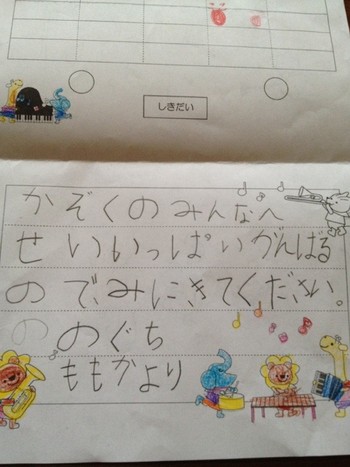 しきだい
かぞくのみんなへ
せいいっぱいがんばる
のでみにきてください。
のぐち
ももかより